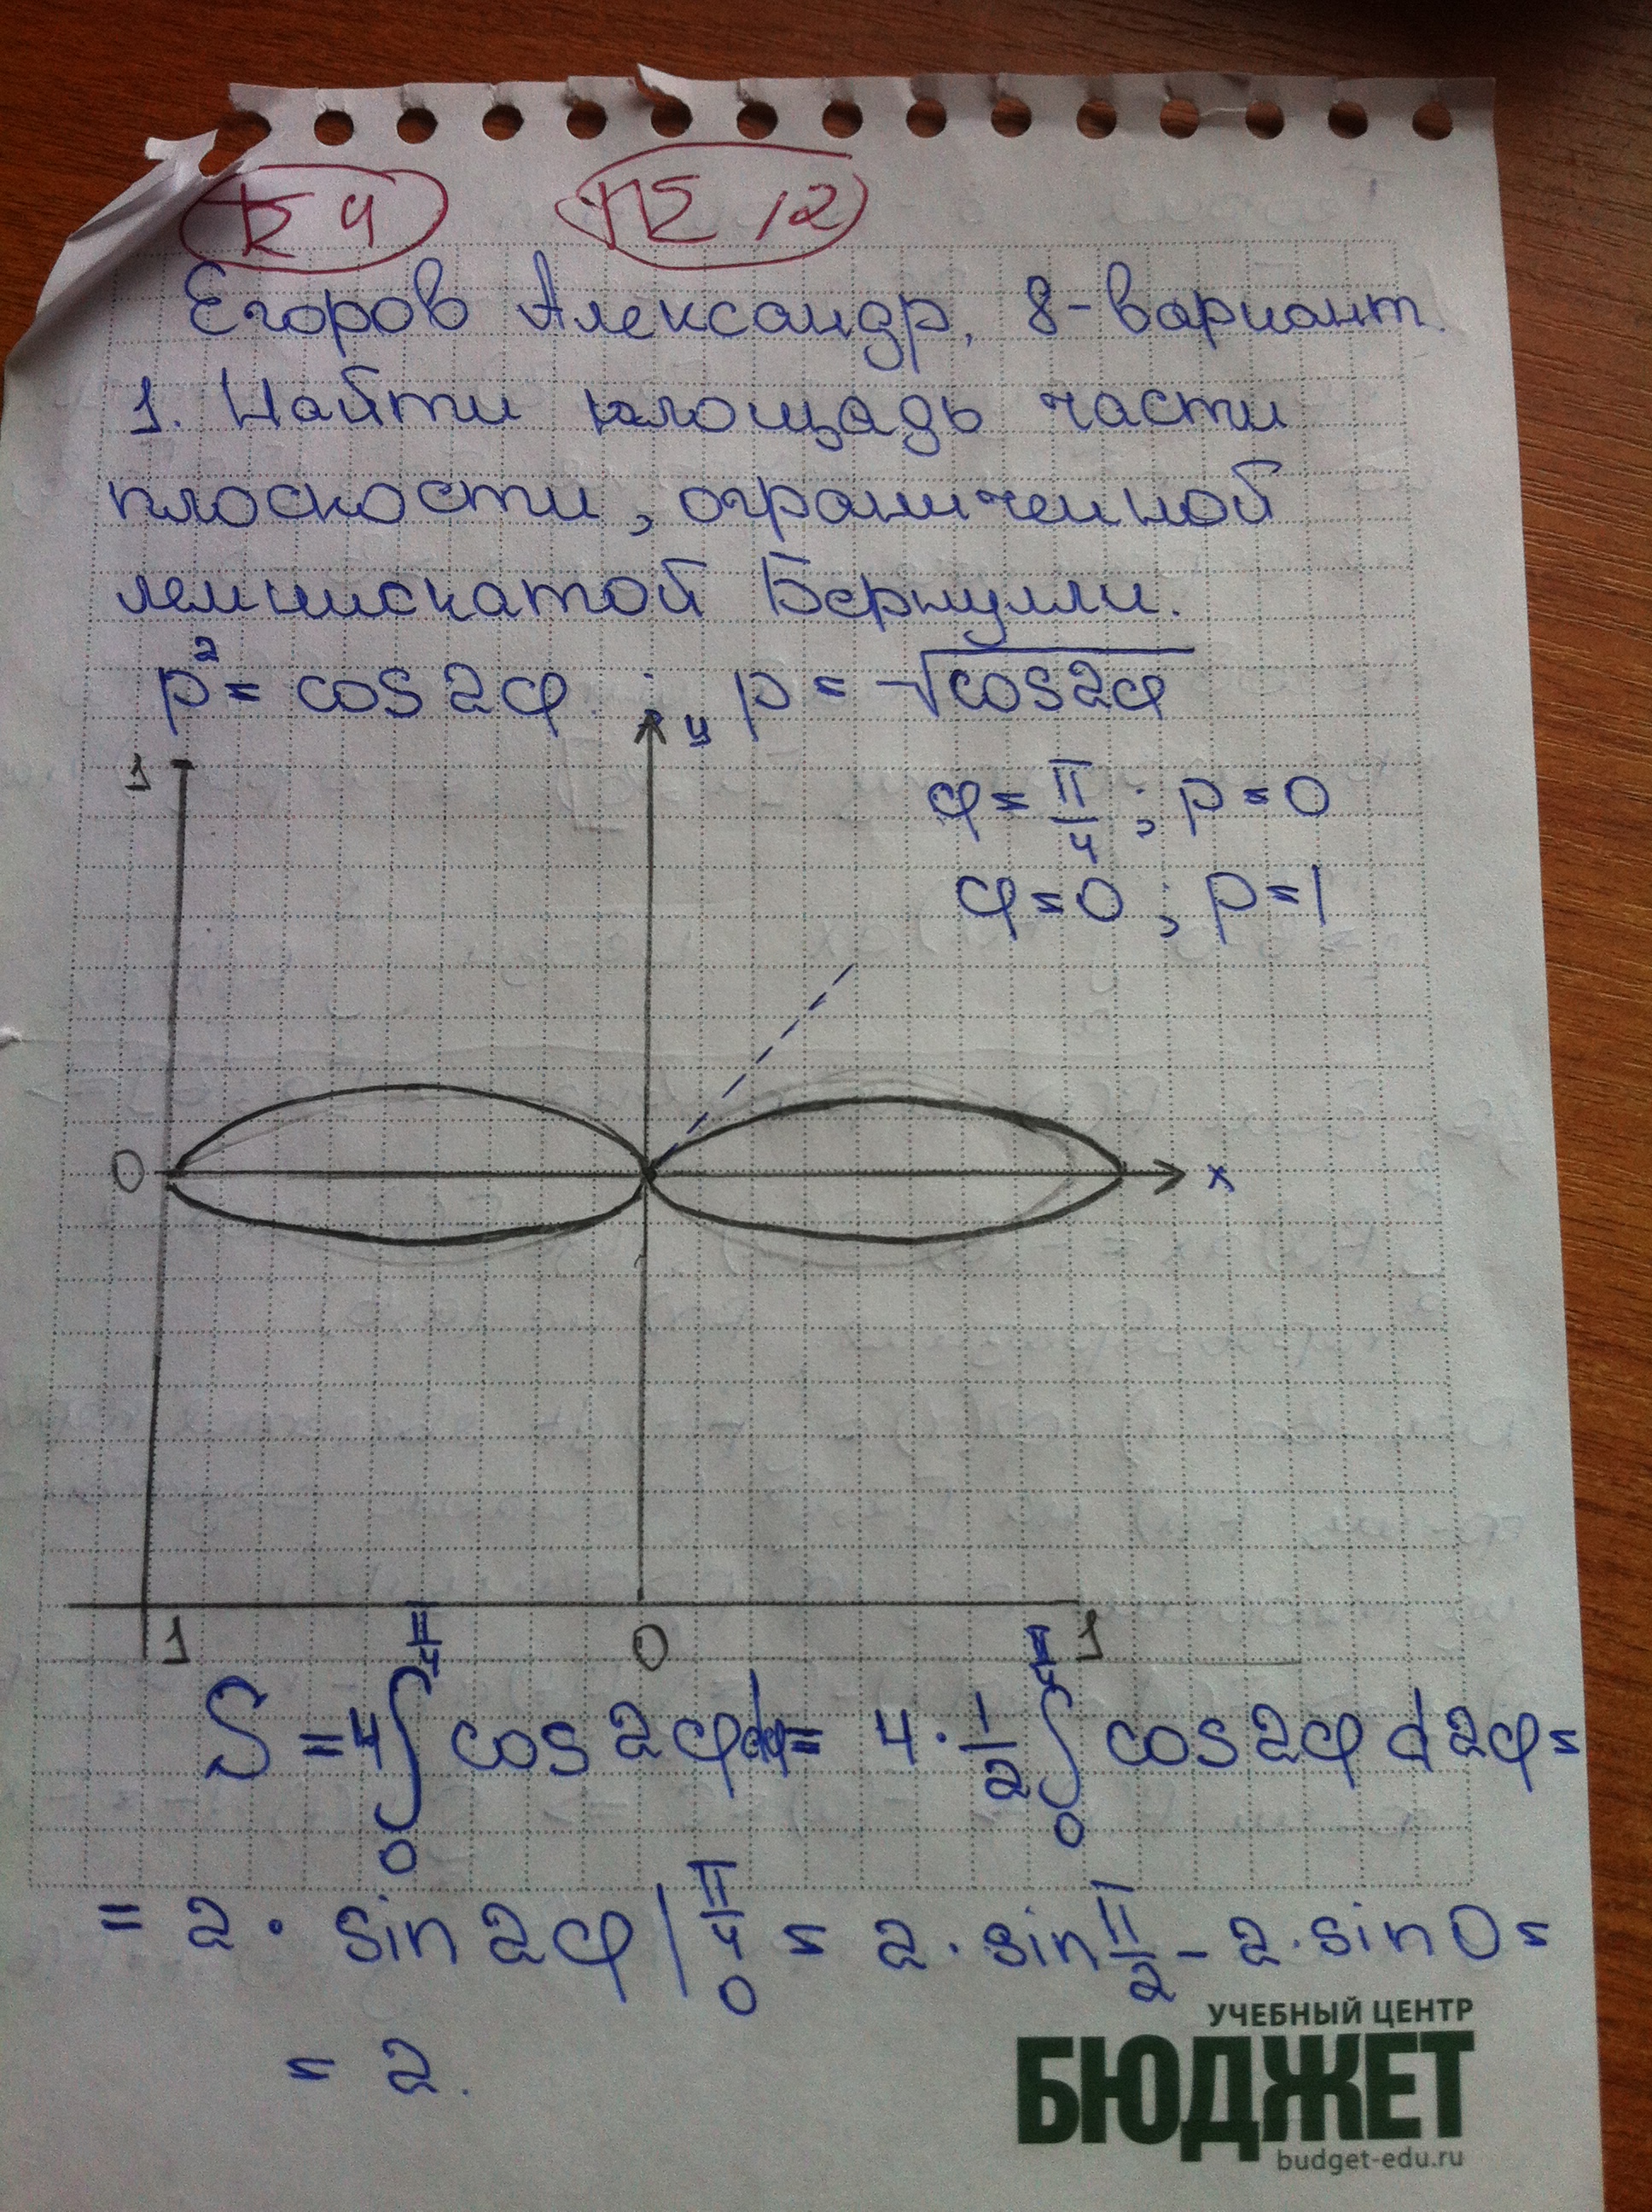 К 4 ПК 12
Егоров Александр, 8-вариант.
1. Найти площадь части
плоскости, ограниченной
лемнискатой Бернулли.
p² = cos 2φ ; p = √cos2φ
1 y φ = π/4 ; p = 0
φ = 0 ; p = 1
0 x
1 0 1
S = 4 ∫₀^{π/4} cos 2φ dφ = 4 · 1/2 ∫₀^{π/4} cos 2φ d 2φ =
= 2 · sin 2φ |₀^{π/4} = 2 · sin π/2 - 2 · sin 0 =
= 2.
УЧЕБНЫЙ ЦЕНТР
БЮДЖЕТ
budget-edu.ru